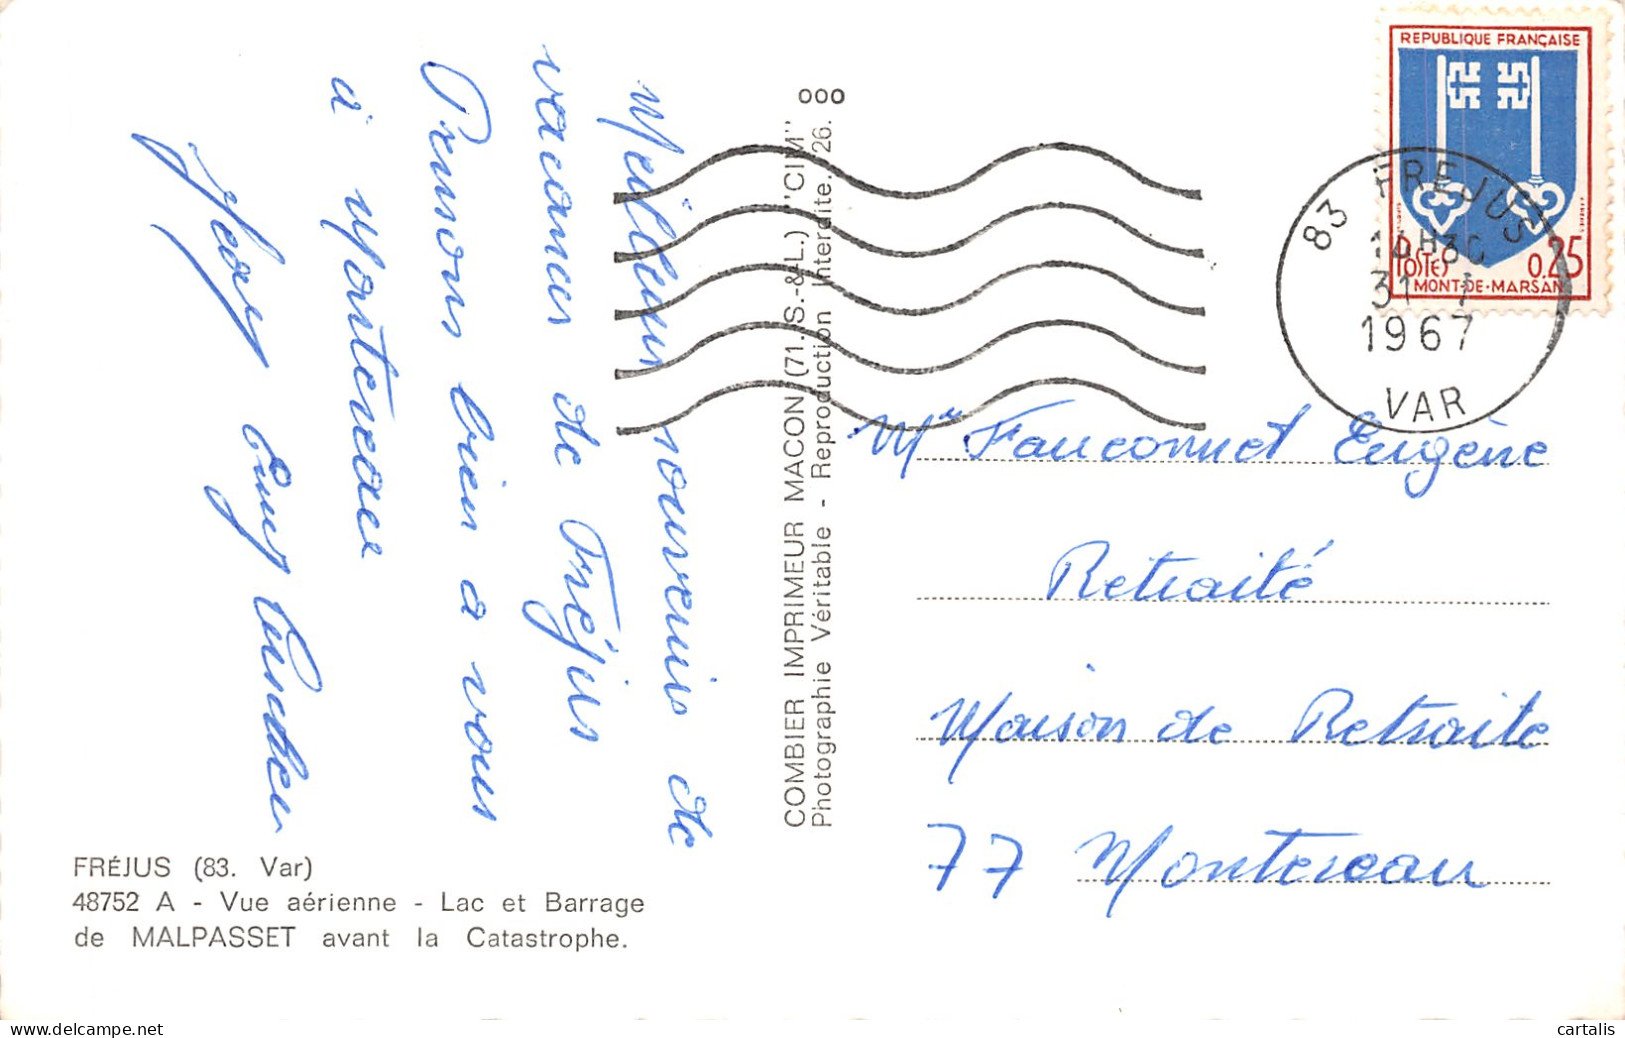 Meilleurs souvenirs de
vacances de Fréjus
Pensons bien à vous
à Montereau
FRÉJUS (83. Var)
48752 A - Vue aérienne - Lac et Barrage
de MALPASSET avant la Catastrophe.
COMBIER IMPRIMEUR MACON (71.-S.-&-L.) "CIM"
Photographie Véritable - Reproduction Interdite. 26.
000
REPUBLIQUE FRANÇAISE
POSTES 0.25
MONT-DE-MARSAN
83 FREJUS
31
1967
VAR
Mr Fauconnet Eugène
Retraité
Maison de Retraite
77 Montereau
delcampe.net
cartalis